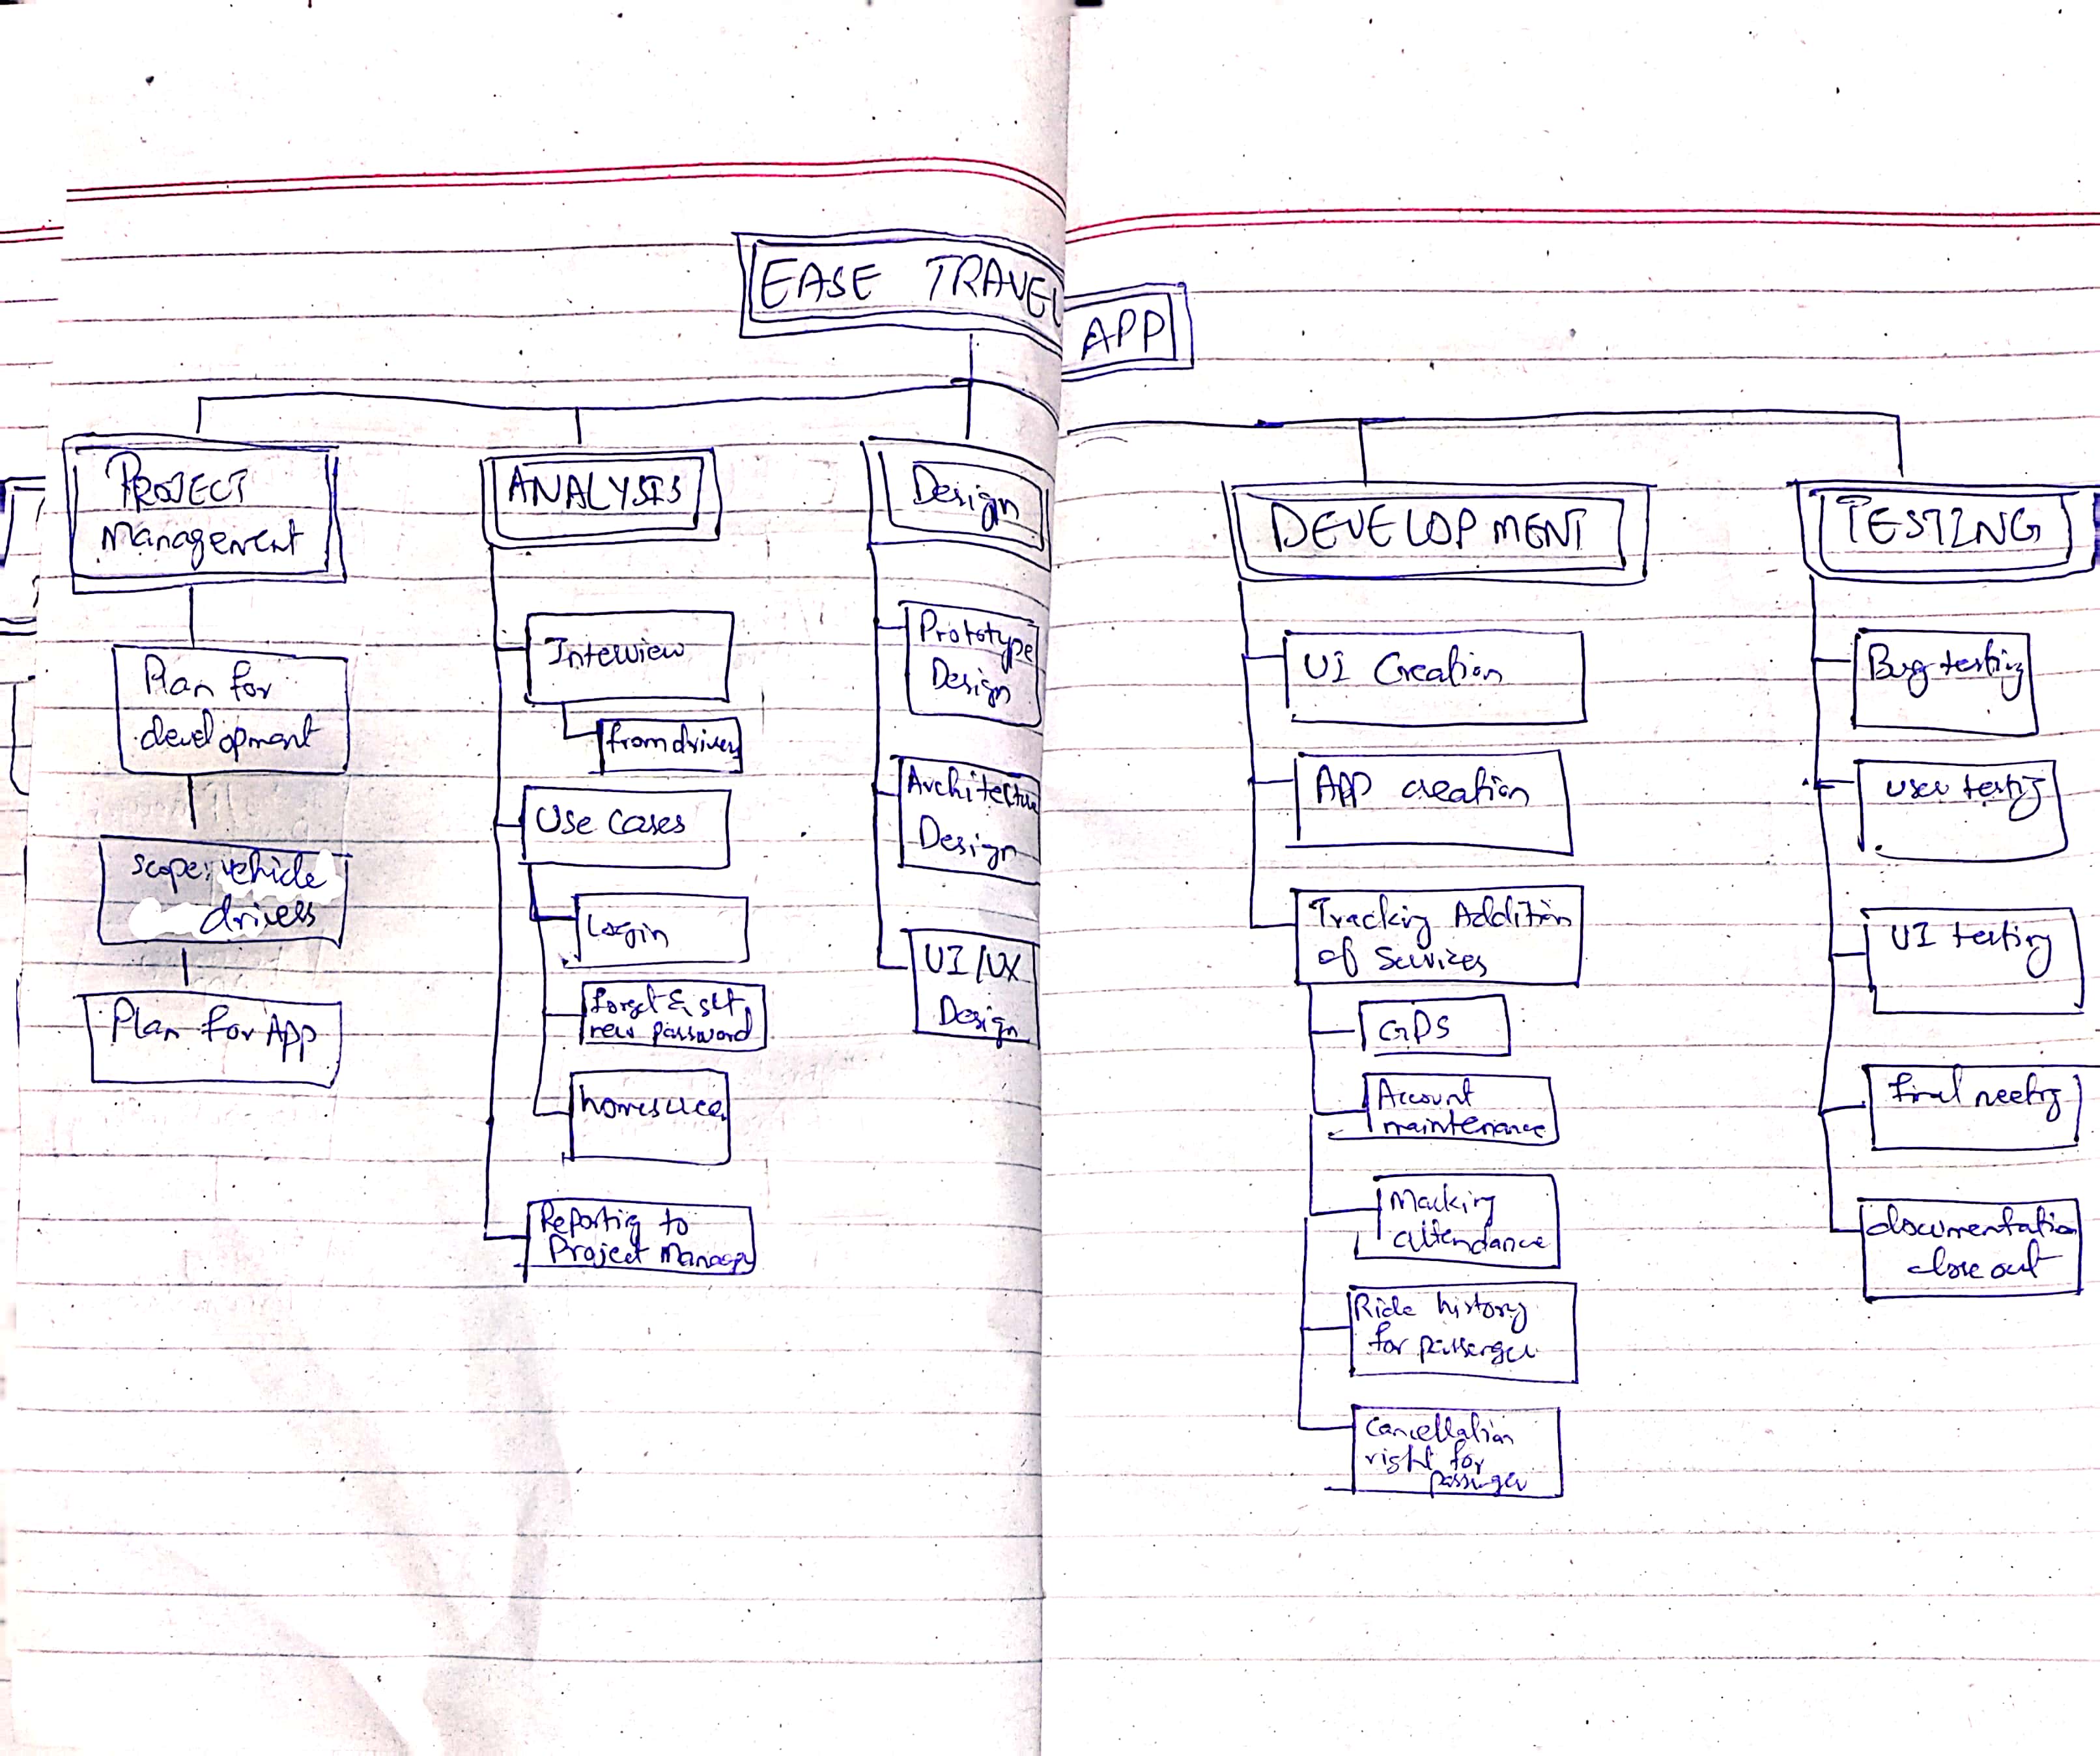 EASE TRAVEL APP
PROJECT
Management
Plan for
development
scope: vehicle
drivers
Plan for App
ANALYSIS
Interview
from driver
Use Cases
Login
forget & set
new password
Reporting to
Project Manager
Design
Prototype
Design
Architecture
Design
UI/UX
Design
DEVELOPMENT
UI Creation
App creation
Tracking Addition
of Services
GPS
Account
maintenance
Marking
attendance
Ride history
for passenger
Cancellation
right for
passenger
TESTING
Bug testing
user testing
UI testing
final meeting
documentation
close out